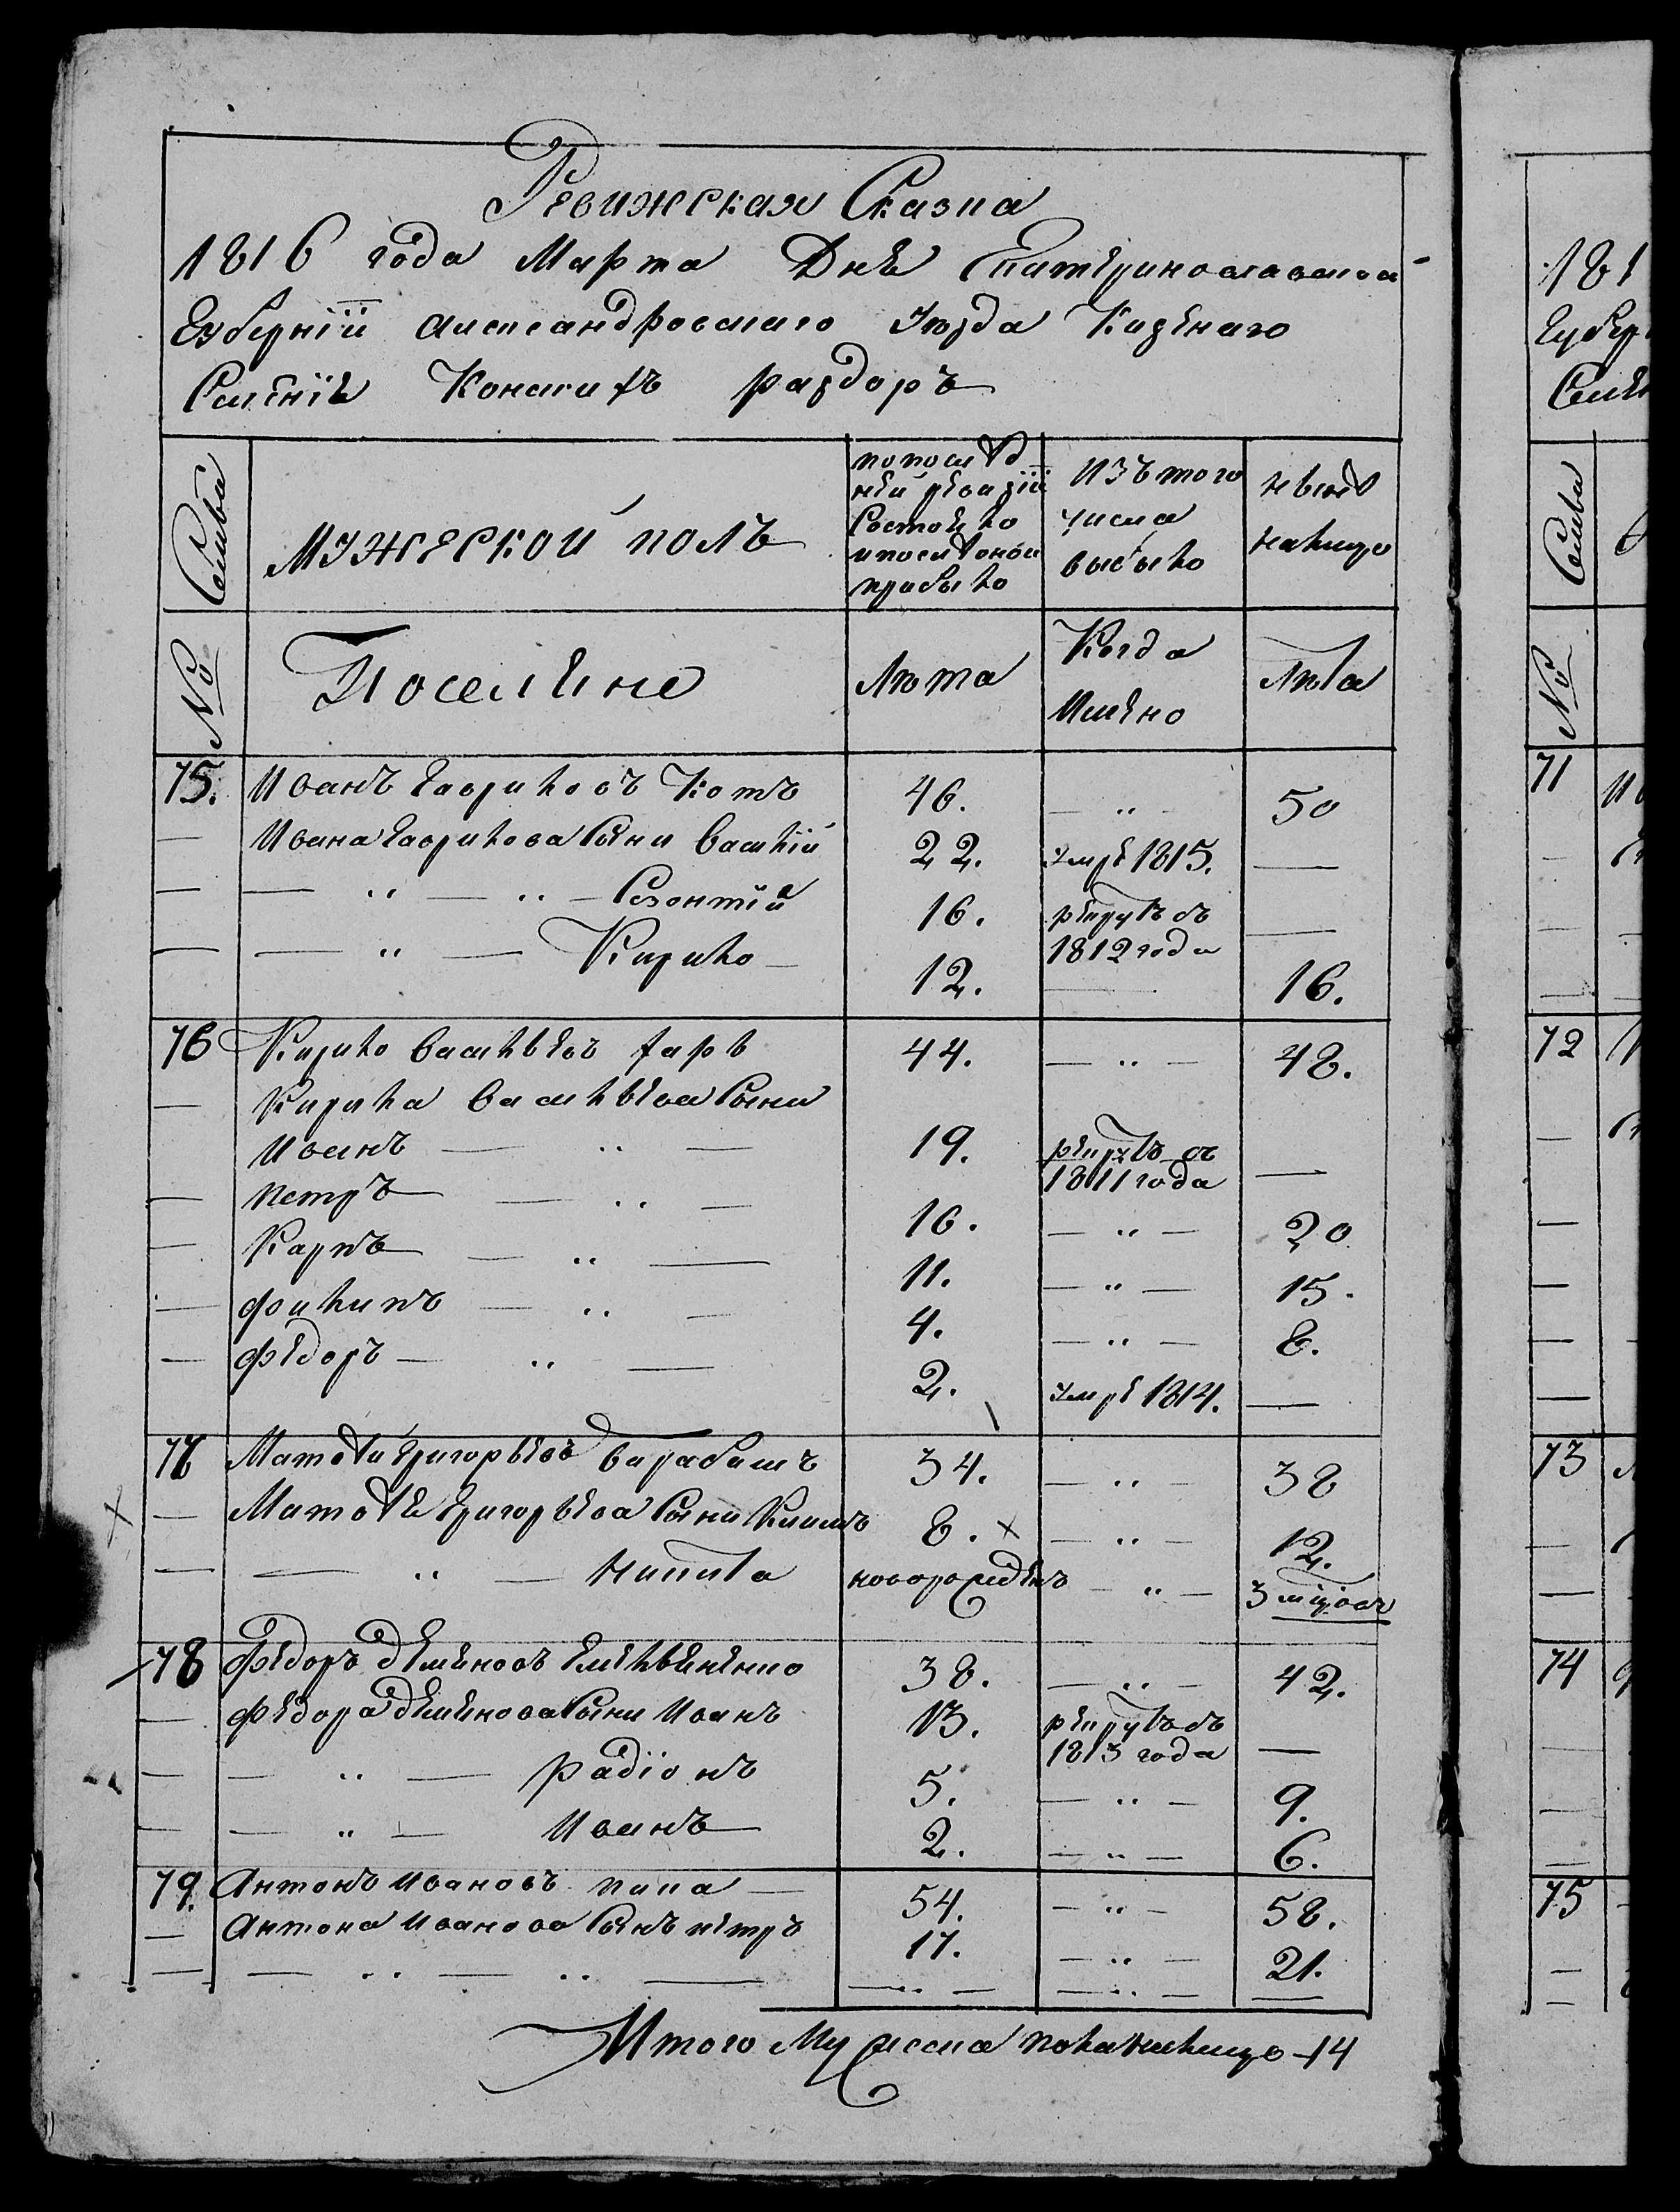 Ревижская Сказка
1816 года Марта Дня Екатеринославской
Губернiи Александровскаго Уезда Казенаго
Селенiя Конскихъ раздоръ
Семья
мужеской полъ
по послѣд
ней ревизiи
состояло
и после оной
прибыло
изъ того
числа
выбыло
ныне
налицо
№
Поселяне
Лѣта
Когда
имено
Лѣта
75. Иванъ Гавриловъ Котъ 46. — " — 50
— Ивана Гаврилова Сыни Василiй 22. умре 1815. —
— — " — " — Созонтiй 16. рекрутъ въ 1812 года —
— — " — Кирило — 12. — 16.
76 Кирило Васильевъ харь 44. — " — 48.
— Кирила Васильева Сыни
Иванъ — " — 19. рекрутъ въ 1811 года —
— Петръ — " — 16. — " — 20
— Карпъ — " — 11. — " — 15.
— Филипъ — " — 4. — " — 8.
— Федоръ — " — 2. умре 1814. —
77 Матвей Григорьевъ Барабашъ 34. — " — 38
— Матвея Григорьева Сыни Климъ 8. × — " — 12.
— — " — Никита новорожденъ — " — 3 мцовъ
78 Федоръ Деменовъ Емельяненко 38. — " — 42.
— Федора Деменова Сыни Иванъ 13. рекрутъ въ 1813 года —
— — " — Радiонъ 5. — " — 9.
— — " — Иванъ 2. — " — 6.
79. Антонъ Ивановъ папа — 54. — " — 58.
— Антона Иванова Сынъ петръ 17. — " — 21.
— — " — " — — " — — " — —
Итого Мужеска пола налицо — 14
181
Губер
Селен
Семья
№
71
72
73
74
75